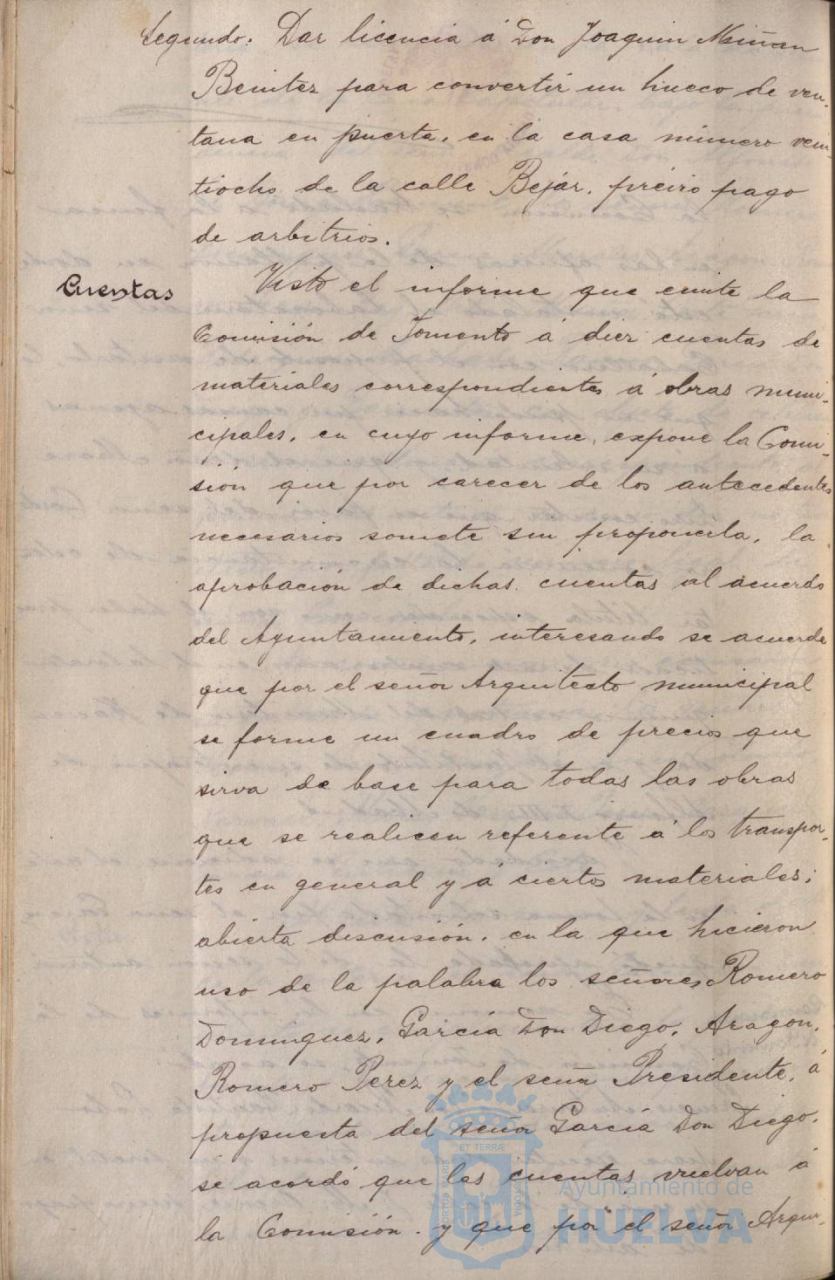 Segundo. Dar licencia á Don Joaquin Miñan
Benitez para convertir un hueco de ven-
tana en puerta, en la casa número vein
tiocho de la calle Bejár, prévio pago
de arbitrios.
Cuentas
Visto el informe que emite la
Comisión de Fomento á diez cuentas de
materiales correspondientes á obras muni-
cipales, en cuyo informe, expone la Comi-
sión que por carecer de los antecedentes
necesarios somete sin proponerla, la
aprobación de dichas cuentas al acuerdo
del Ayuntamiento, interesando se acuerde
que por el señor Arquitecto municipal
se forme un cuadro de precios que
sirva de base para todas las obras
que se realicen referente á los transpor-
tes en general y á ciertos materiales;
abierta discusión, en la que hicieron
uso de la palabra los señores Romero
Dominguez, García Don Diego, Aragon,
Romero Perez y el señor Presidente, á
propuesta del señor García Don Diego,
se acordó que las cuentas vuelvan á
la Comisión y que por el señor Arqui-
Ayuntamiento de
HUELVA